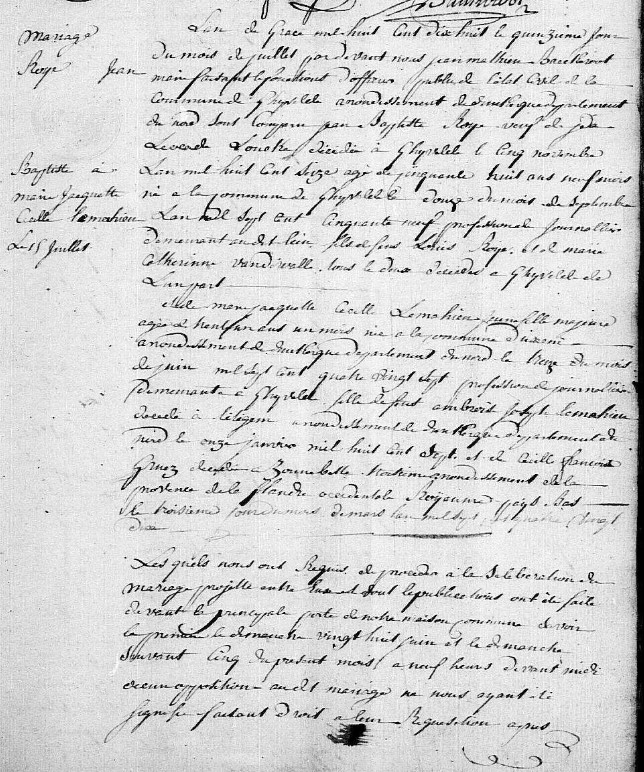 mariage
Roye Jean
Baptiste à
marie Jacquette
Cecille Lemahieu
Le 15 Juillet
Lan de Grace mil huit Cent dix huit le quinzieme Jour
du mois de juillet par devant nous jean mathieu
maire faisant les fonctions d'officier publie de letat Civil de la
Commune de Ghyvelde arrondissement de dunkerque departement
du nord sont Comparu jean Baptiste Roye veuf de
decedée a Ghyvelde le Cinq novembre
Lan mil huit Cent Seize agé de cinquante huit ans neuf mois
né a la Commune de Ghyvelde le douze du mois de Septembre
Lan mil Sept Cent Cinquante neuf profession de Journallier
demeurant au dit lieu, fils de feus Louis Roye, et de marie
Catherinne vandewalle, tous le deux decedés a Ghyvelde de
Lun part
et de marie jacquette Cecille Lemahieu jeune fille majeure
agée de trente un ans un mois née a la Commune
arrondissement de dunkerque departement du nord le treize du mois
de juin mil Sept Cent quatre vingt Sept profession de journalliere
demeurante a Ghyvelde, fille de feus ambroise joseph Lemahieu
decedé a arrondissement de dunkerque departement du
nord le onze janvier mil huit Cent Sept et de Cecille
decedée a arrondissement de la
provence de la flandre occidentale Royaume pays Bas
le troisieme jour du mois de mars Lan mil Sept Cent quatre vingt
dix
Les quels nous ont Requis de proceder à la Seliberation du
mariage projetté entre Eux et dont les publications ont été faite
devant la principale porte de notre maison Commune Savoir
la premiere le dimanche vingt huit juin et le dimanche
Suivant Cinq du present mois, a neuf heurs devant midi
aucun oppotition au dit mariage ne nous ayant été
signifié faisant droit a leur Requisition apres